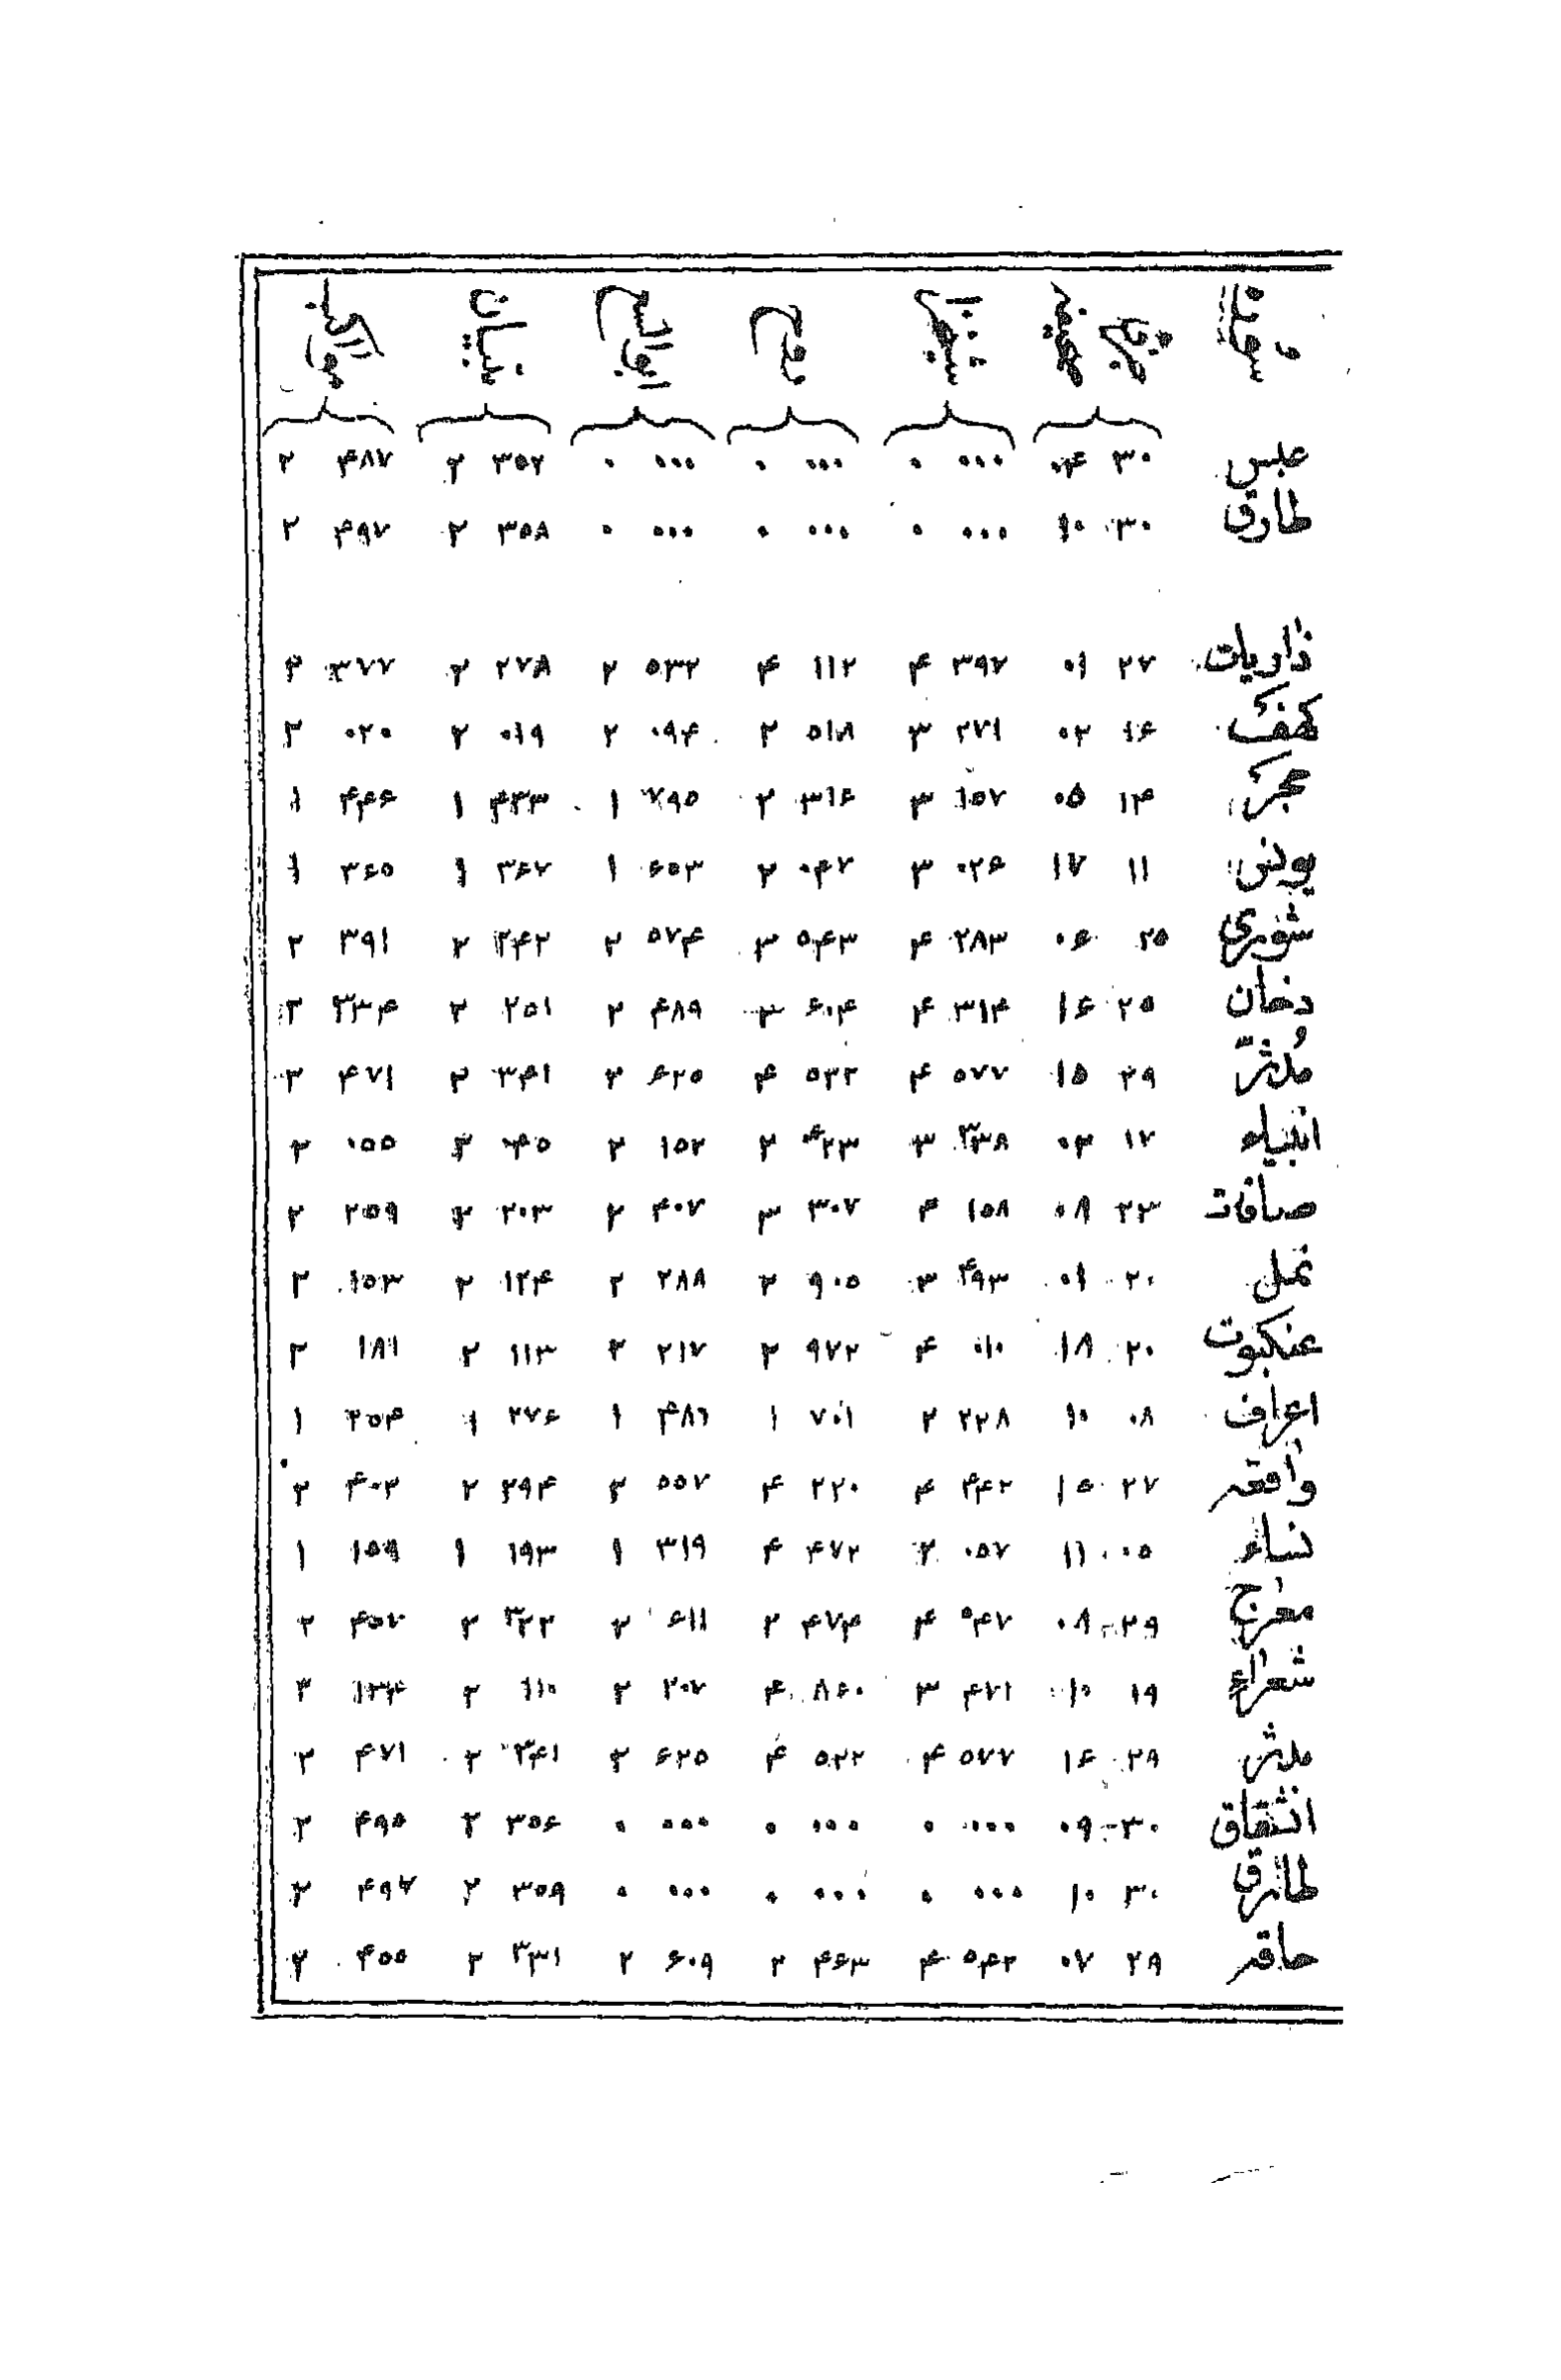 عبس ۳۰ ۰۴ ۰۰۰ ۰ ۰۰۰ ۰ ۰۰۰ ۰ ۳۵۲ ۲ ۴۸۷ ۲
طارق ۳۰ ۱۰ ۰۰۰ ۰ ۰۰۰ ۰ ۰۰۰ ۰ ۳۵۸ ۲ ۴۹۷ ۲
ذاریات ۲۷ ۰۱ ۳۹۷ ۴ ۱۱۲ ۴ ۵۳۲ ۲ ۲۷۸ ۲ ۳۷۷ ۲
کهف ۱۶ ۰۲ ۲۷۱ ۳ ۵۱۸ ۲ ۰۹۴ ۲ ۰۱۹ ۲ ۰۲۰ ۲
حجر ۱۴ ۰۵ ۱۵۷ ۳ ۳۱۶ ۲ ۷۹۵ ۱ ۴۳۳ ۱ ۴۴۶ ۱
یونس ۱۱ ۱۷ ۰۲۶ ۳ ۰۴۷ ۲ ۶۵۳ ۱ ۳۶۷ ۱ ۳۶۵ ۱
شوری ۲۵ ۰۶ ۲۸۳ ۴ ۵۴۳ ۳ ۵۷۴ ۲ ۲۴۲ ۲ ۳۹۱ ۲
دخان ۲۵ ۱۶ ۳۱۴ ۴ ۶۰۴ ۳ ۴۸۹ ۲ ۲۵۱ ۲ ۳۳۴ ۲
مُدثّر ۲۹ ۱۵ ۵۷۷ ۴ ۵۲۲ ۴ ۶۲۵ ۲ ۳۴۱ ۲ ۴۷۱ ۲
انبیاء ۱۷ ۰۳ ۳۳۸ ۳ ۴۲۳ ۲ ۱۵۲ ۲ ۰۴۵ ۲ ۰۵۵ ۲
صافات ۲۳ ۰۸ ۱۵۸ ۴ ۳۰۷ ۳ ۴۰۷ ۲ ۲۰۳ ۲ ۲۵۹ ۲
نمل ۲۰ ۰۱ ۴۹۳ ۳ ۹۰۵ ۲ ۲۸۸ ۲ ۱۲۴ ۲ ۱۵۳ ۲
عنکبوت ۲۰ ۱۸ ۰۱۰ ۴ ۹۷۲ ۲ ۲۱۷ ۲ ۱۱۳ ۲ ۱۸۱ ۲
اعراف ۰۸ ۱۰ ۲۲۸ ۲ ۷۰۱ ۱ ۴۸۶ ۱ ۲۷۶ ۱ ۲۵۴ ۱
واقعه ۲۷ ۱۵ ۴۴۲ ۴ ۲۲۰ ۴ ۵۵۷ ۲ ۲۹۴ ۲ ۴۰۲ ۲
نساء ۰۵ ۱۱ ۰۵۷ ۲ ۴۷۲ ۴ ۳۱۹ ۱ ۱۹۳ ۱ ۱۵۹ ۱
معراج ۲۹ ۰۸ ۵۴۷ ۴ ۴۷۴ ۲ ۶۱۱ ۲ ۳۲۲ ۲ ۴۵۷ ۲
شعراء ۱۹ ۱۰ ۴۷۱ ۳ ۸۶۰ ۴ ۲۰۷ ۲ ۱۱۰ ۲ ۱۳۴ ۲
مدثر ۲۹ ۱۶ ۵۷۷ ۴ ۵۲۲ ۴ ۶۲۵ ۲ ۳۴۱ ۲ ۴۷۱ ۲
انشقاق ۳۰ ۰۹ ۰۰۰ ۰ ۰۰۰ ۰ ۰۰۰ ۰ ۳۵۶ ۲ ۴۹۵ ۲
طارق ۳۰ ۱۰ ۰۰۰ ۰ ۰۰۰ ۰ ۰۰۰ ۰ ۳۵۹ ۲ ۴۹۷ ۲
حاقه ۲۹ ۰۷ ۵۴۲ ۴ ۴۶۳ ۲ ۶۰۹ ۲ ۳۳۱ ۲ ۴۵۵ ۲